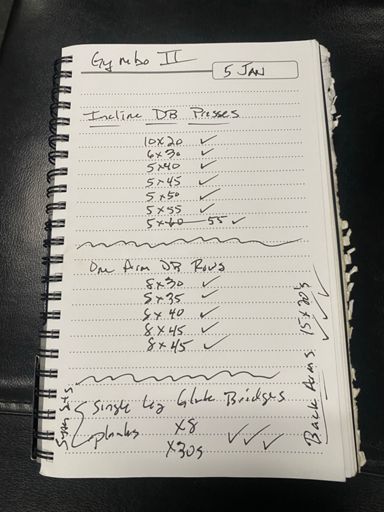 Gymbo II
5 JAN
Incline DB Presses
10x20 ✓
6x30 ✓
5x40 ✓
5x45 ✓
5x50 ✓
5x55 ✓
5x60 55 ✓
One Arm DB Rows
8x30 ✓
8x35 ✓
8x40 ✓
8x45 ✓
8x45 ✓
Super Sets
Single Leg Glute Bridges
x8
planks
x30s ✓✓✓
Back Arms 15x20's ✓✓✓